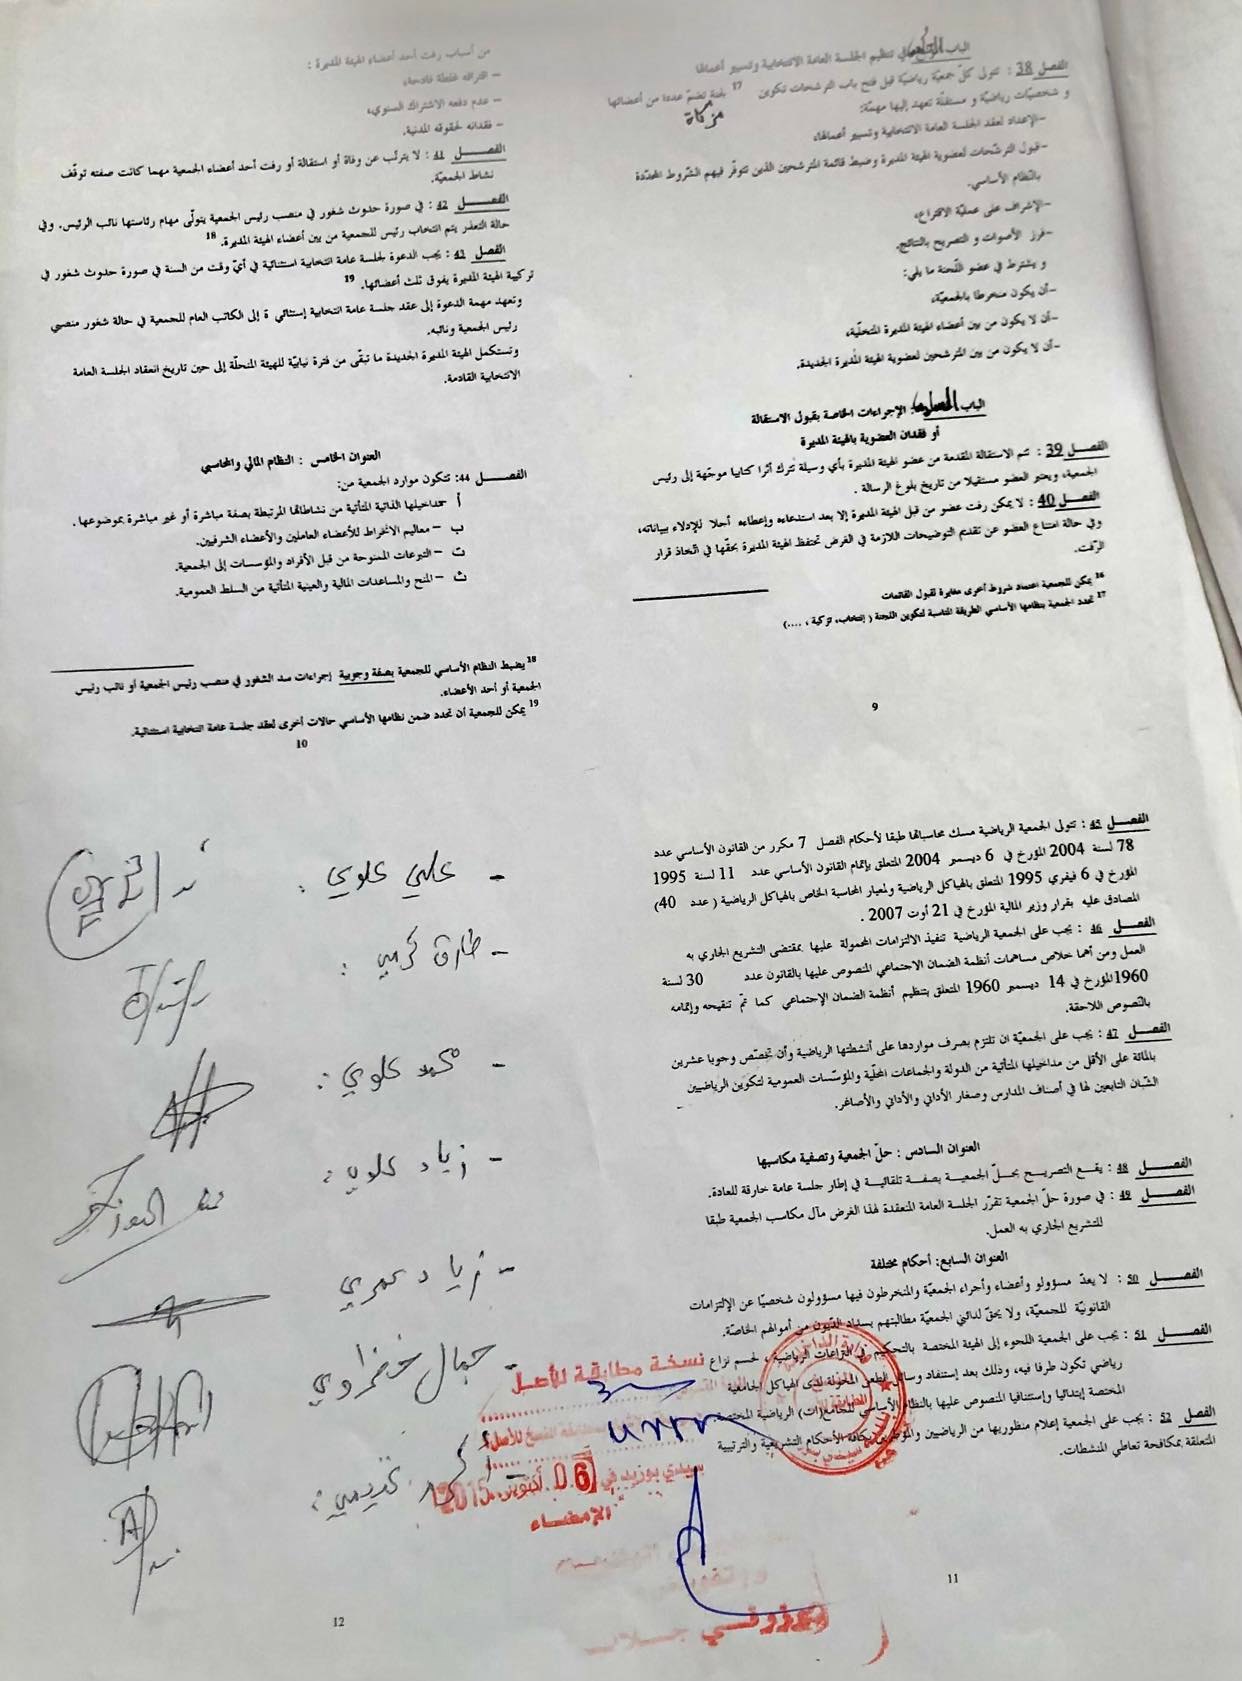 الباب في تنظيم الجلسة العامة الانتخابية وتسيير أعمالها
الفصل 38 : تتولى كلّ جمعية رياضيّة قبل فتح باب الترشحات تكوين 17 لجنة تضمّ عددا من أعضائها
مزكاة
و شخصيّات رياضيّة و مستقلّة تعهد إليها مهمّة:
-الإعداد لعقد الجلسة العامة الانتخابية وتسيير أعمالها،
-قبول الترشّحات لعضوية الهيئة المديرة وضبط قائمة المترشحين الذين تتوفّر فيهم الشّروط المحدّدة
بالنّظام الأساسي.
-الإشراف على عمليّة الاقتراع،
-فرز الأصوات و التصريح بالنتائج.
و يشترط في عضو اللّجنة ما يلي:
-أن يكون منخرطا بالجمعيّة،
-أن لا يكون من بين أعضاء الهيئة المديرة المتخلّية،
-أن لا يكون من بين المترشحين لعضوية الهيئة المديرة الجديدة.
الباب : الإجراءات الخاصة بقبول الاستقالة
أو فقدان العضوية بالهيئة المديرة
الفصل 39 : تتم الاستقالة المقدمة من عضو الهيئة المديرة بأي وسيلة تترك أثرا كتابيا موجّهة إلى رئيس
الجمعية، ويعتبر العضو مستقيلا من تاريخ بلوغ الرسالة .
الفصل 40 : لا يمكن رفت عضو من قبل الهيئة المديرة إلا بعد استدعاءه وإعطاءه أجلا للإدلاء ببياناته،
وفي حالة امتناع العضو عن تقديم التوضيحات اللازمة في الغرض تحتفظ الهيئة المديرة بحقّها في اتّخاذ قرار
الرّفت.
16 يمكن للجمعية اعتماد شروط أخرى مغايرة لقبول القائمات
17 تحدد الجمعية بنظامها الأساسي الطريقة المناسبة لتكوين اللجنة ( إنتخاب، تزكية ، ....)
9
من أسباب رفت أحد أعضاء الهيئة المديرة :
- اقترافه غلطة فادحة،
- عدم دفعه الاشتراك السنوي،
- فقدانه لحقوقه المدنية.
الفصل 41 : لا يترتّب عن وفاة أو استقالة أو رفت أحد أعضاء الجمعية مهما كانت صفته توقّف
نشاط الجمعيّة.
الفصل 42 : في صورة حدوث شغور في منصب رئيس الجمعية يتولّى مهام رئاستها نائب الرئيس. وفي
حالة التعذر يتم انتخاب رئيس للجمعية من بين أعضاء الهيئة المديرة. 18
الفصل 43 : يجب الدعوة لجلسة عامة انتخابية استثنائية في أيّ وقت من السنة في صورة حدوث شغور في
تركيبة الهيئة المديرة يفوق ثلث أعضائها. 19
وتعهد مهمة الدعوة إلى عقد جلسة عامة انتخابية إستثنائي ة إلى الكاتب العام للجمعية في حالة شغور منصبي
رئيس الجمعية ونائبه.
وتستكمل الهيئة المديرة الجديدة ما تبقّى من فترة نيابيّة للهيئة المنحلّة إلى حين تاريخ انعقاد الجلسة العامة
الانتخابية القادمة.
العنوان الخامس : النظام المالي والمحاسبي
الفصل 44: تتكون موارد الجمعية من:
أ -مداخيلها الذاتية المتأتية من نشاطاتها المرتبطة بصفة مباشرة أو غير مباشرة بموضوعها .
ب -معاليم الانخراط للأعضاء العاملين والأعضاء الشرفيين.
ت -التبرعات الممنوحة من قبل الأفراد والمؤسسات إلى الجمعية.
ث -المنح والمساعدات المالية والعينية المتأتية من السلط العمومية.
18 يضبط النظام الأساسي للجمعية بصفة وجوبية إجراءات سد الشغور في منصب رئيس الجمعية أو نائب رئيس
الجمعية أو أحد الأعضاء.
19 يمكن للجمعية أن تحدد ضمن نظامها الأساسي حالات أخرى لعقد جلسة عامة انتخابية استثنائية.
10
الفصل 45 : تتولى الجمعية الرياضية مسك محاسباتها طبقا لأحكام الفصل 7 مكرر من القانون الأساسي عدد
78 لسنة 2004 المؤرخ في 6 ديسمبر 2004 المتعلق بإتمام القانون الأساسي عدد 11 لسنة 1995
المؤرخ في 6 فيفري 1995 المتعلق بالهياكل الرياضية ولمعيار المحاسبة الخاص بالهياكل الرياضية ( عدد 40)
المصادق عليه بقرار وزير المالية المؤرخ في 21 أوت 2007 .
الفصل 46 : يجب على الجمعية الرياضية تنفيذ الالتزامات المحمولة عليها بمقتضى التشريع الجاري به
العمل ومن أهما خلاص مساهمات أنظمة الضمان الاجتماعي المنصوص عليها بالقانون عدد 30 لسنة
1960المؤرخ في 14 ديسمبر 1960 المتعلق بتنظيم أنظمة الضمان الإجتماعي كما تمّ تنقيحه وإتمامه
بالنّصوص اللاحقة.
الفصل 47 : يجب على الجمعيّة ان تلتزم بصرف مواردها على أنشطتها الرياضية وأن تخصّص وجوبا عشرين
بالمائة على الأقل من مداخيلها المتأتية من الدولة والجماعات المحلّية والمؤسّسات العمومية لتكوين الرياضيين
الشبّان التابعين لها في أصناف المدارس وصغار الأداني والأداني والأصاغر.
العنوان السادس : حلّ الجمعية وتصفية مكاسبها
الفصل 48 : يقع التصريح بحلّ الجمعية بصفة تلقائية في إطار جلسة عامة خارقة للعادة.
الفصل 49 : في صورة حلّ الجمعية تقرّر الجلسة العامة المنعقدة لهذا الغرض مآل مكاسب الجمعية طبقا
للتشريع الجاري به العمل.
العنوان السابع: أحكام مختلفة
الفصل 50 : لا يعدّ مسؤولو وأعضاء وأجراء الجمعيّة والمنخرطون فيها مسؤولون شخصيّا عن الإلتزامات
القانونيّة للجمعيّة، ولا يحقّ لدائني الجمعيّة مطالبتهم بسداد الدّيون من أموالهم الخاصّة.
الفصل 51 : يجب على الجمعية اللجوء إلى الهيئة المختصة بالتحكيم في النزاعات الرياضية ، لحسم نزاع
رياضي تكون طرفا فيه، وذلك بعد إستنفاد وسائل الطعن المخولة لدى الهياكل الجامعية
المختصة إبتدائيا وإستئنافيا المنصوص عليها بالنظام الأساسي للجامع(ات) الرياضية المختصة.
الفصل 52 : يجب على الجمعية إعلام منظوريها من الرياضيين والمؤطرين بكافة الأحكام التشريعية والترتيبية
المتعلقة بمكافحة تعاطي المنشطات.
11
- علي علوي :
- طارق كرمي :
- محمد علوي :
- زياد علوي :
- زياد عمري
- جمال خضراوي
نسخة مطابقة للأصل
بسيدي بوزيد في 06 أكتوبر 2015
الإمضاء
12